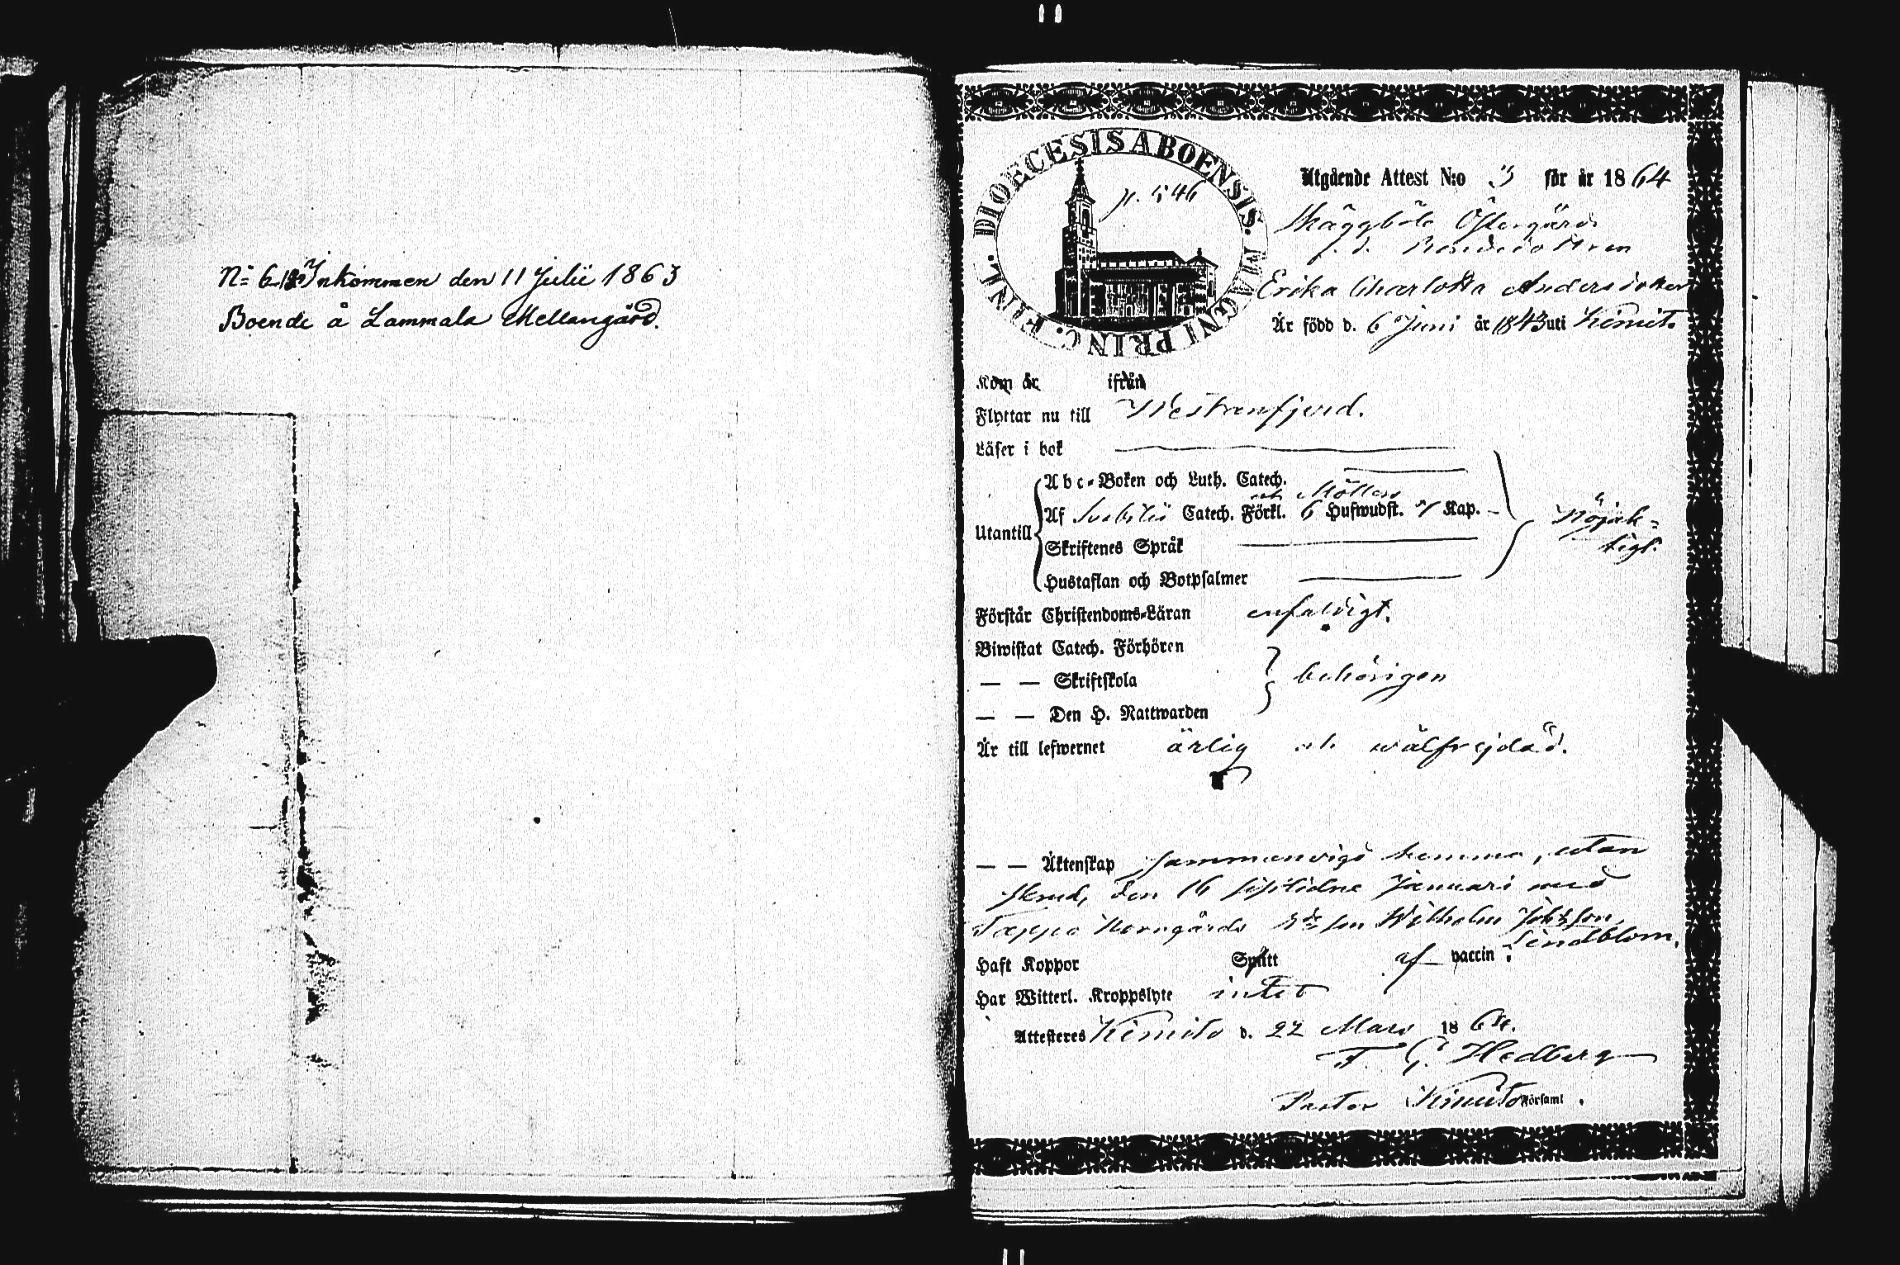 N:o 6 Inkommen den 11 Julii 1863
Boende å Lammala Mellangård.
DIOECESIS ABOENSIS. MAGNI PRINC. FINL.
p. 546
Utgående Attest N:o 3 för år 1864
Skäggböle Östergårds
f. d.
Erika Charlotta Andersdotter
Är född d. 6 Juni år 1843 uti Kimito
Kom år ifrån
Flyttar nu till Westanfjerd.
Läser i bok
Abc-Boken och Luth. Catech.
och Möllers
Utantill
Af Svebilii Catech. Förkl. 6 Hufwudst. Kap.
Nöjak-
tigt.
Skriftenes Språk
Hustaflan och Botpsalmer
Förstår Christendoms-Läran enfaldigt.
Biwistat Catech. Förhören
— — Skriftskola behörigen
— — Den H. Nattwarden
Är till lefwernet ärlig och wälfrejdad.
— — Äktenskap sammanvigd hemma, utan
skrud, den 16 sistlidne Januari med
Tappo Norrgårds son Wilhelm Johsson
Lindblom.
Haft Koppor Smitt af vaccin:
Har Witterl. Kroppslyte intet
Attesteres Kimito d. 22 Mars 1864.
F. G. Hedberg
Pastor Kimito Församl.